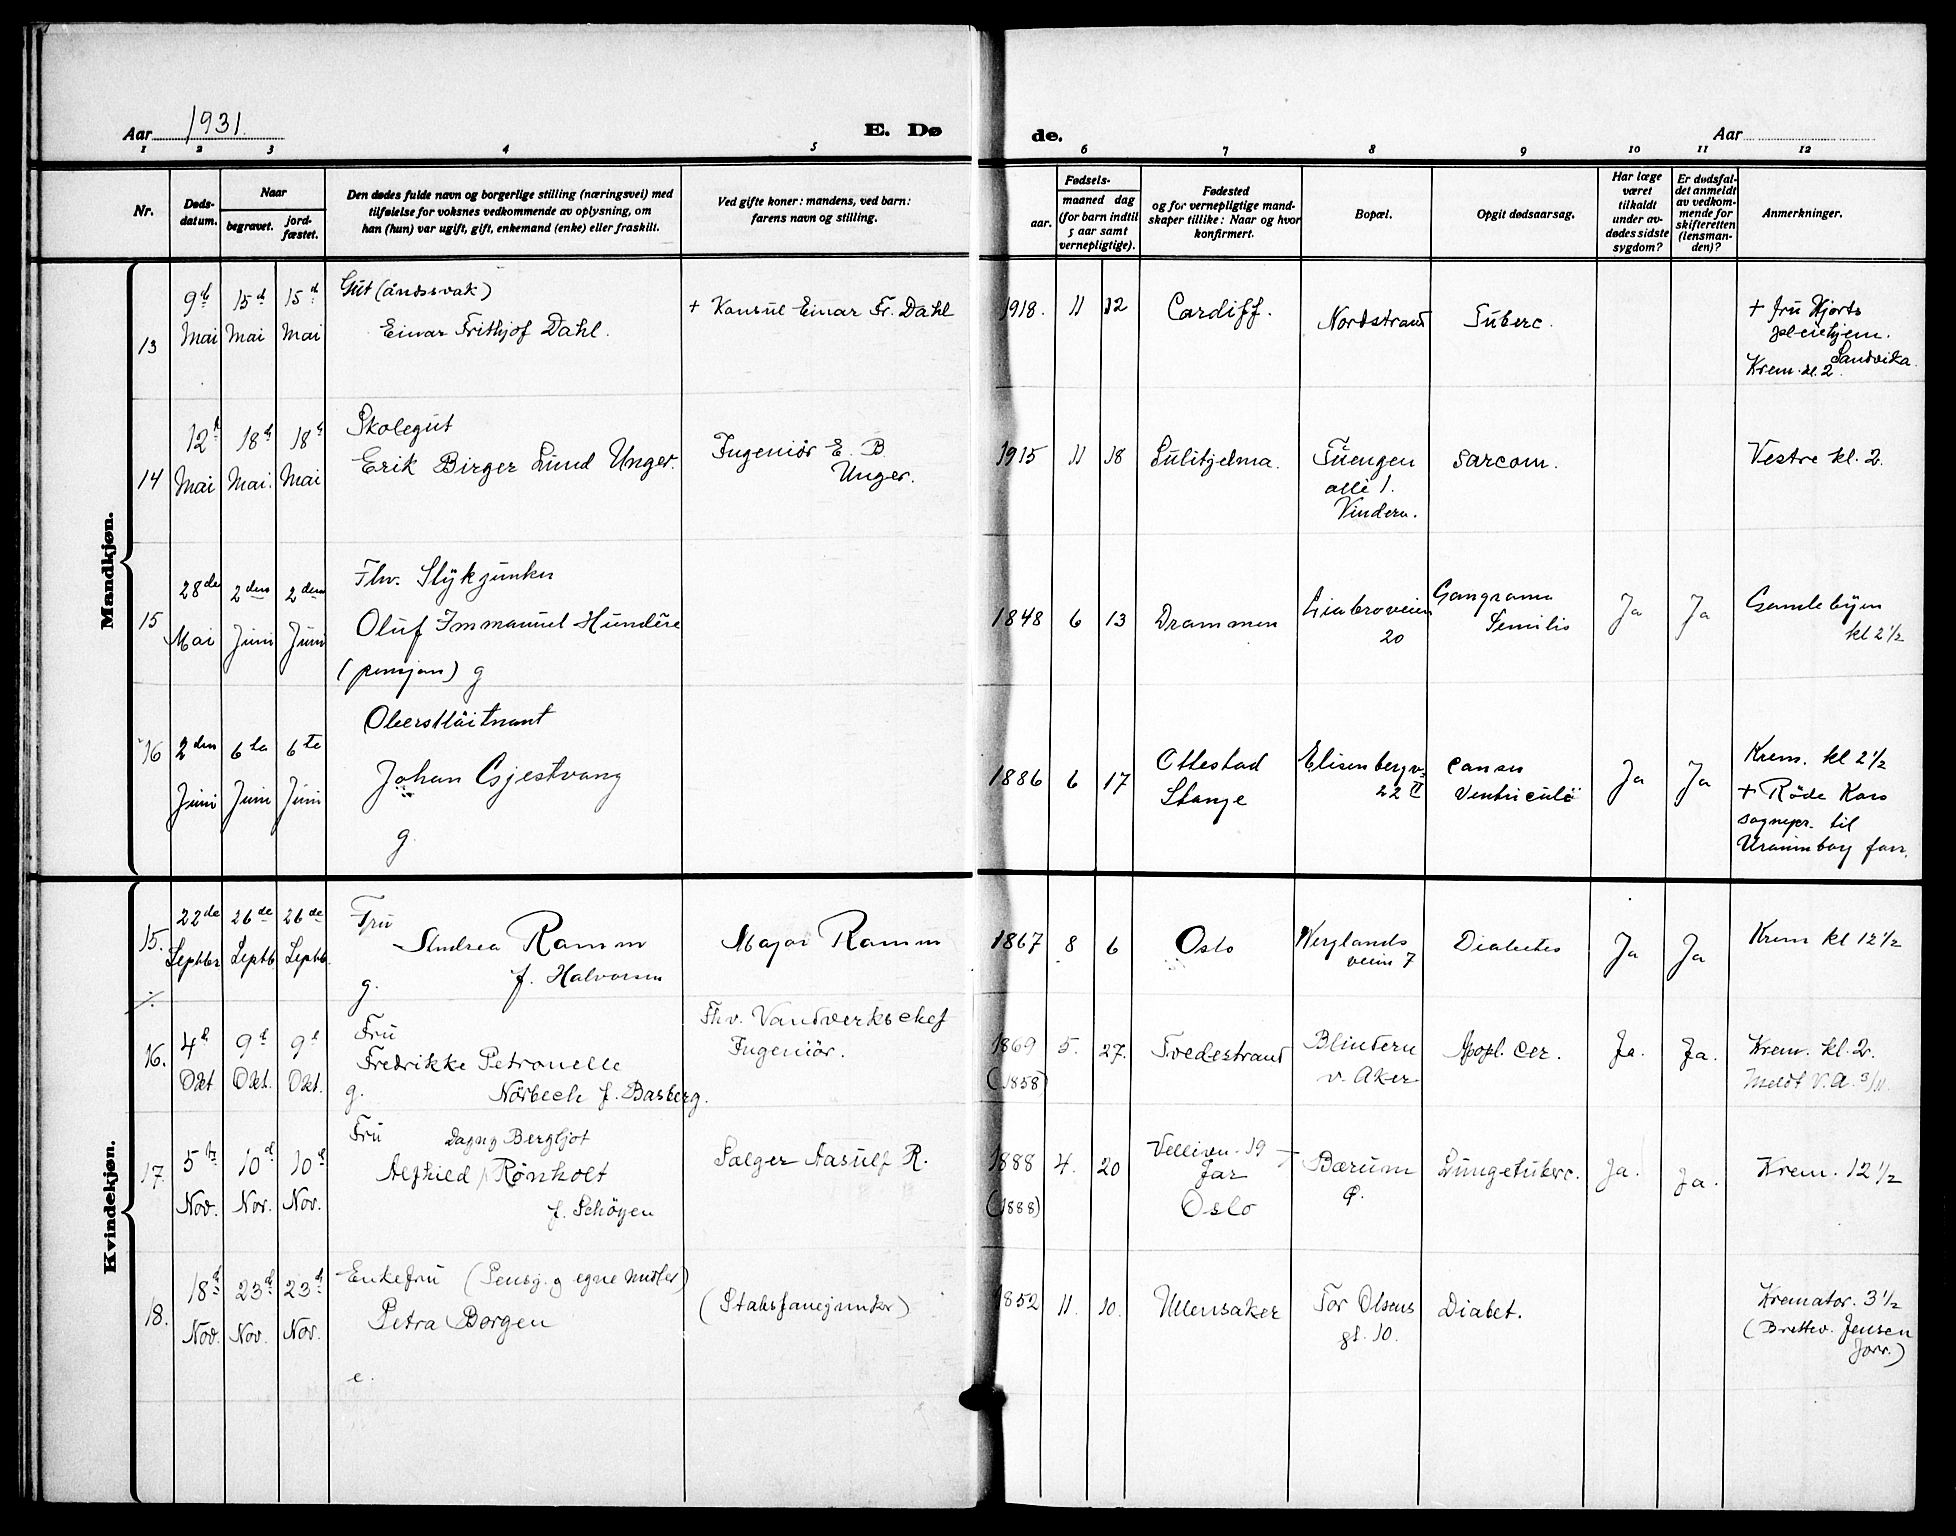 Aar 1931.
E. Dø
de.
Aar
1 2 3 4 5 6 7 8 9 10 11 12
Nr.
Døds-
datum.
Naar
begravet.
jord-
fæstet.
Den dødes fulde navn og borgerlige stilling (næringsvei) med
tilføielse for voksnes vedkommende av oplysning, om
han (hun) var ugift, gift, enkemand (enke) eller fraskilt.
Ved gifte koner: mandens, ved barn:
farens navn og stilling.
Fødsels-
aar.
maaned dag
(for barn indtil
5 aar samt
vernepligtige).
Fødested
og for vernepligtige mand-
skaper tillike: Naar og hvor
konfirmert.
Bopæl.
Opgit dødsaarsag.
Har læge
været
tilkaldt
under av-
dødes sidste
sygdom?
Er dødsfal-
det anmeldt
av vedkom-
mende for
skifteretten
(lensman-
den)?
Anmerkninger.
Mandkjøn.
13
9d
Mai
15d
Mai
15d
Mai
Gut (åndssvak)
Einar Frithjof Dahl.
+ Konsul Einar Fr. Dahl
1918. 11 12
Cardiff.
Nordstrand
Tuberc.
+ Fru Hjorts
pleiehjem.
Sandvika.
Krem. kl. 2
14
12t
Mai
18d
Mai.
18d
Mai
Skolegut
Erik Birger Lund Unger.
Ingeniør E. B.
Unger.
1915 11 18
Sulitjelma.
Tuengen
allè 1.
Vindern.
Sarcom.
Vestre kl. 2.
15
28de
Mai
2den
Juni
2den
Juni
Fhv. Stykjunker
Oluf Immanuel Hundere
(pensjon) g
1848 6 13
Drammen
Liabroveien
20
Gangræna
Senilis
Ja
Ja
Gamlebyen
kl 2 1/2
16
2den
Juni
6te
Juni
6te
Juni
Oberstløitnant
Johan Gjestvang
g.
1886 6 17
Ottestad
Stange
Elisenbergv.
22 II
Cancer
Ventriculi
Ja
Ja
Krem. kl 2 1/2
+ Røde Kors
sognepr. til
Uranienborg forr.
Kvindekjøn.
15.
22de
Septbr
26de
Septb
26de
Septb.
Fru
Andrea Ramm
f. Halvorsen
g.
Major Ramm
1867 8 6
Oslo
Wergelands
veien 7
Diabetes
Ja
Ja
Krem kl 12 1/2
16.
4d
Okt
9d
Okt.
9d
Okt.
Fru
Fredrikke Petronelle
g. Nørbech f. Basberg.
Fhv. Vandverkschef
Ingeniør.
1869 5. 27.
(1858)
Tvedestrand
Blindern
v. Aker
Apopl. cer.
Ja.
Ja.
Krem. kl. 2.
Meldt V.A. 3/11.
17.
5te
Nov.
10d
Nov.
10d
Nov.
Fru
Dagny Bergljot
Alfhild Rønholt
f. Schøyen
Sælger Aasulf R.
1888 4. 20
(1888)
Velliven. 19
Jar
Oslo
Bærum
Lungetuberc.
Ja.
Ja.
Krem. 12 1/2
18.
18d
Nov.
23d
Nov.
23d
Nov.
Enkefru (Pensj. og egne midler)
Petra Borgen
e.
(Stabsfanejunker)
1852 11. 10.
Ullensaker
Tor Olsens
gt. 10.
Diabet.
Kremator. 3 1/2
(Brettev. Jensen
forr.)